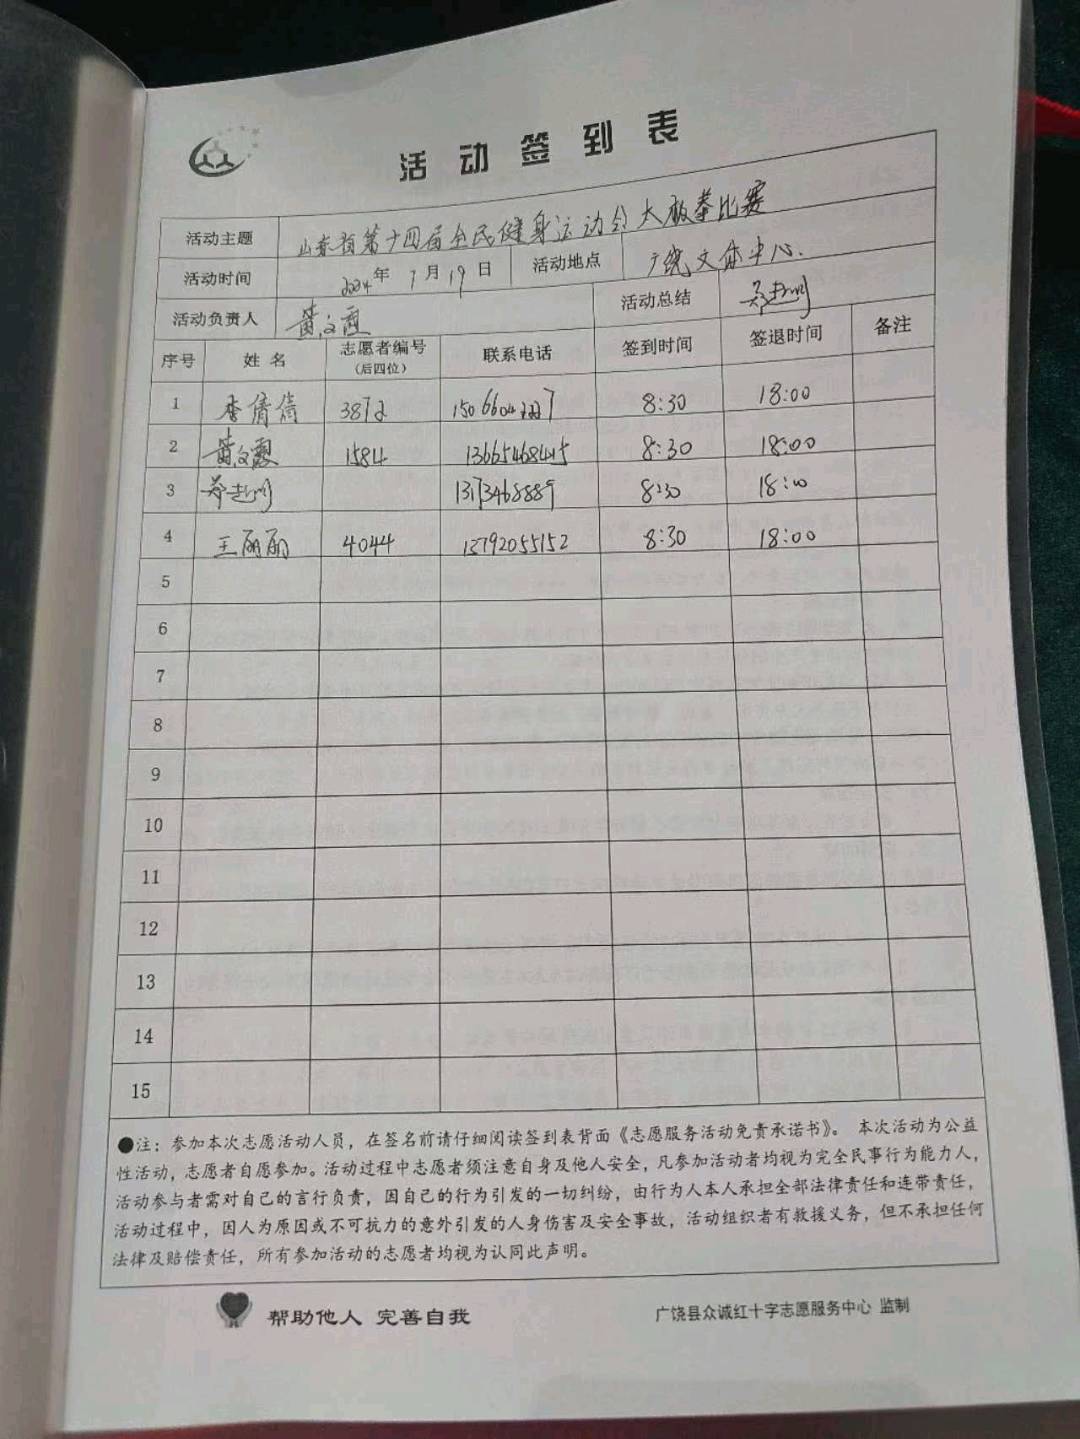 活动签到表
活动主题 山东省第十四届全民健身运动会太极拳比赛
活动时间 2024年7月19日 活动地点 广饶文体中心.
活动负责人 黄文霞 活动总结
序号 姓名 志愿者编号（后四位） 联系电话 签到时间 签退时间 备注
1 李倩倩 3872 15066042227 8:30 18:00
2 黄文霞 1584 13665468415 8:30 18:00
3 13173468889 8:30 18:00
4 王丽丽 4044 13792055152 8:30 18:00
5
6
7
8
9
10
11
12
13
14
15
●注：参加本次志愿活动人员，在签名前请仔细阅读签到表背面《志愿服务活动免责承诺书》。本次活动为公益
性活动，志愿者自愿参加。活动过程中志愿者须注意自身及他人安全，凡参加活动者均视为完全民事行为能力人，
活动参与者需对自己的言行负责，因自己的行为引发的一切纠纷，由行为人本人承担全部法律责任和连带责任，
活动过程中，因人为原因或不可抗力的意外引发的人身伤害及安全事故，活动组织者有救援义务，但不承担任何
法律及赔偿责任，所有参加活动的志愿者均视为认同此声明。
帮助他人 完善自我 广饶县众诚红十字志愿服务中心 监制